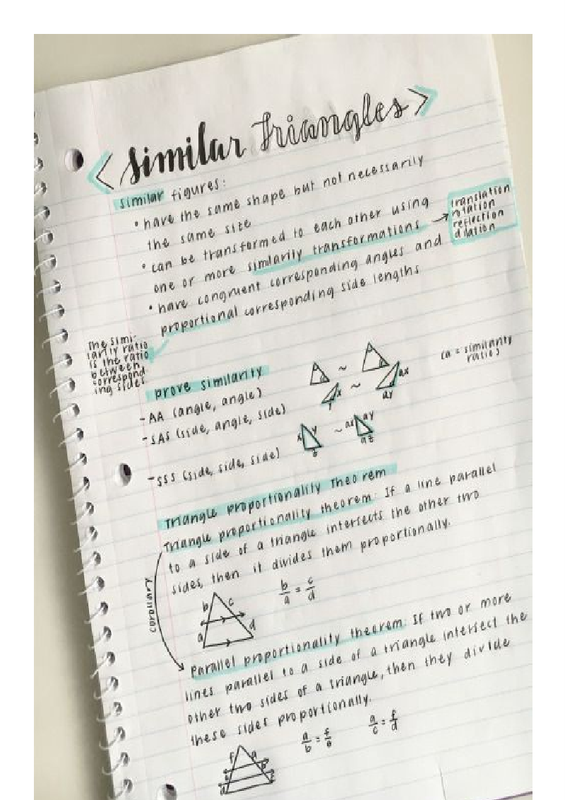 < similar triangles >
similar figures:
• have the same shape but not necessarily
the same size
• can be transformed to each other using
one or more similarity transformations →
translation
rotation
reflection
dilation
• have congruent corresponding angles and
proportional corresponding side lengths
The simi-
larity ratio
is the ratio
between
correspond
ing sides
prove similarity
(a = similarity
ratio)
- AA (angle, angle)
~
- SAS (side, angle, side)
x y ~ ax ay
- SSS (side, side, side)
x y z ~ ax ay az
Triangle Proportionality Theorem
Triangle proportionality theorem: If a line parallel
to a side of a triangle intersects the other two
sides, then it divides them proportionally.
corollary
b c
a d
b/a = c/d
Parallel proportionality theorem: If two or more
lines parallel to a side of a triangle intersect the
other two sides of a triangle, then they divide
these sides proportionally.
a/b = f/e
a/c = f/d
f a
e b
d c